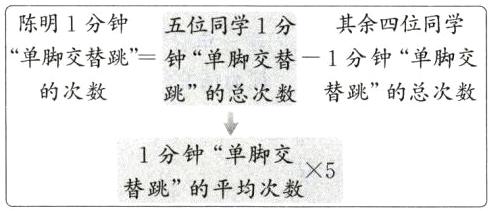 陈明 1 分钟 五位同学 1 分 其余四位同学
“单脚交替跳”= 钟“单脚交替 － 1 分钟“单脚交
的次数 跳”的总次数 替跳”的总次数
1 分钟“单脚交
替跳”的平均次数 ×5